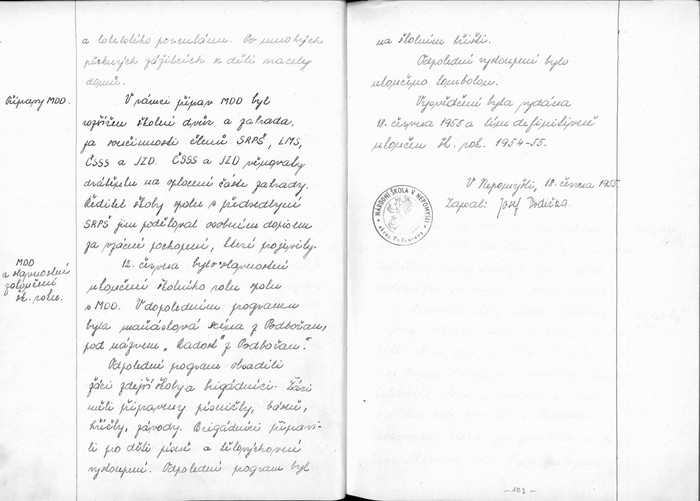 a tohoto lékořského porculánu. Po mnohých
pěkných zážitcích se děti vracely
domů.
Přípravy MDD.
V rámci příprav MDD byl
rozšířen školní dvůr a zahrada
za součinnosti členů SRPŠ, LMS,
ČSSS a JZD. ČSSS a JZD věnovaly
drátěnku na oplocení části zahrady.
Ředitel školy spolu s předsedkyní
SRPŠ jim poděkoval osobním dopisem
za vzácné pochopení, které projevily.
MDD
a slavnostní
zakončení
šk. roku.
12. června bylo slavnostní
ukončení školního roku spolu
s MDD. V dopoledním programu
byla maňásková scéna z Podbořan,
pod názvem „Radost z Podbořan".
Odpolední program obsadili
žáci zdejší školy a brigádníci. Žáci
měli připraveny písničky, básně,
hříčky, závody. Brigádníci připravi-
li pro děti písně a tělovýchovná
vystoupení. Odpolední program byl
na školním hřišti.
Odpolední vystoupení bylo
ukončeno tombolou.
Vysvědčení byla vydána
18. června 1955 a tím definitivně
ukončen šk. rok 1954-55.
V Nepomyšli, 18. června 1955.
Zapsal: Josef
NÁRODNÍ ŠKOLA V NEPOMYŠLI
okres Podbořany
- 107 -